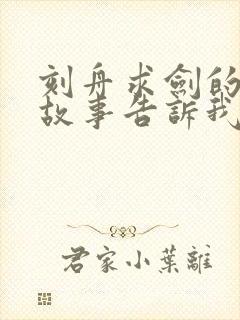 刻舟求劍的
故事告訴我
君家小葉離